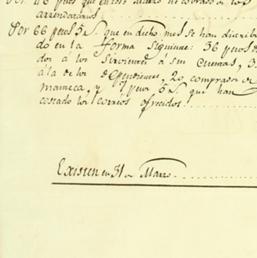 Por 46 pesos que
arrendatarios
Por 66 pesos 5 rs. que en dicho mes se han distribui-
do en la forma siguiente: 36 pesos
dos a los sirvientes a sus cuentas, 3
á la de los dependientes, 20 comprados de
manteca, y 7 pesos 5 rs. que han
costado los correos ofrecidos
Existen en 31 de Marzo